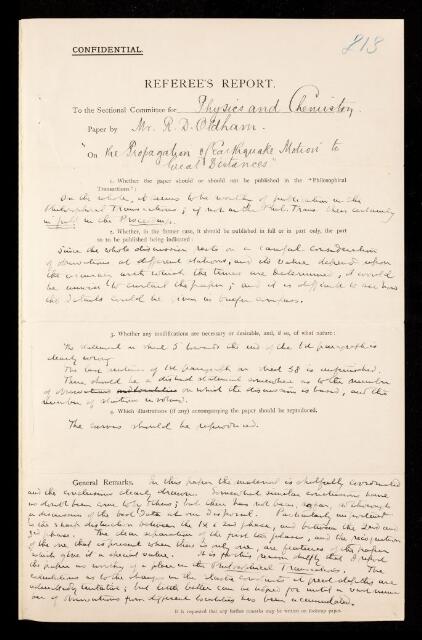 813
CONFIDENTIAL.
REFEREE'S REPORT.
To the Sectional Committee for Physics and Chemistry.
Paper by Mr. R. D. Oldham.
"On the Propagation of Earthquake Motion to
Great Distances"
1. Whether the paper should or should not be published in the "Philosophical
Transactions":
On the whole, it seems to be worthy of publication in the
Philosophical Transactions; if not in the Phil. Trans. then certainly
in full in the Proceedings.
2. Whether, in the former case, it should be published in full or in part only, the part
so to be published being indicated:
Since the whole discussion rests on a careful consideration
of observations at different stations, and its value depends upon
the accuracy with which the times are determined, it would
be unwise to contract the paper; and it is difficult to see how
the details could be given in briefer compass.
3. Whether any modifications are necessary or desirable, and, if so, of what nature:
The statement on sheet 5 towards the end of the 1st paragraph is
clearly wrong.
The last sentence of 1st paragraph on sheet 58 is unfinished.
There should be a distinct statement somewhere as to the number
of observations on which the discussion is based, and the
number of stations involved.
4. Which illustrations (if any) accompanying the paper should be reproduced.
The curves should be reproduced.
General Remarks. In this paper the material is skilfully coordinated
and the conclusions clearly drawn. Somewhat similar conclusions have
no doubt been come to by others; but there has not been, so thorough
a discussion of the best data at our disposal. Particularly important
is the sharp distinction between the 1st & 2nd phase, and between the 2nd and
3rd phase. The clear separation of the first two phases, and the recognition
of the one that is present when there is but one, are features of the paper
which give it a special value. It is for this reason chiefly that I regard
the paper as worthy of a place in the Philosophical Transactions. The
calculations as to the changes in the elastic constants at great depths are
admittedly tentative; but little better can be hoped for until a vast
of observations from different localities has been accumulated.
It is requested that any further remarks may be written on foolscap paper.